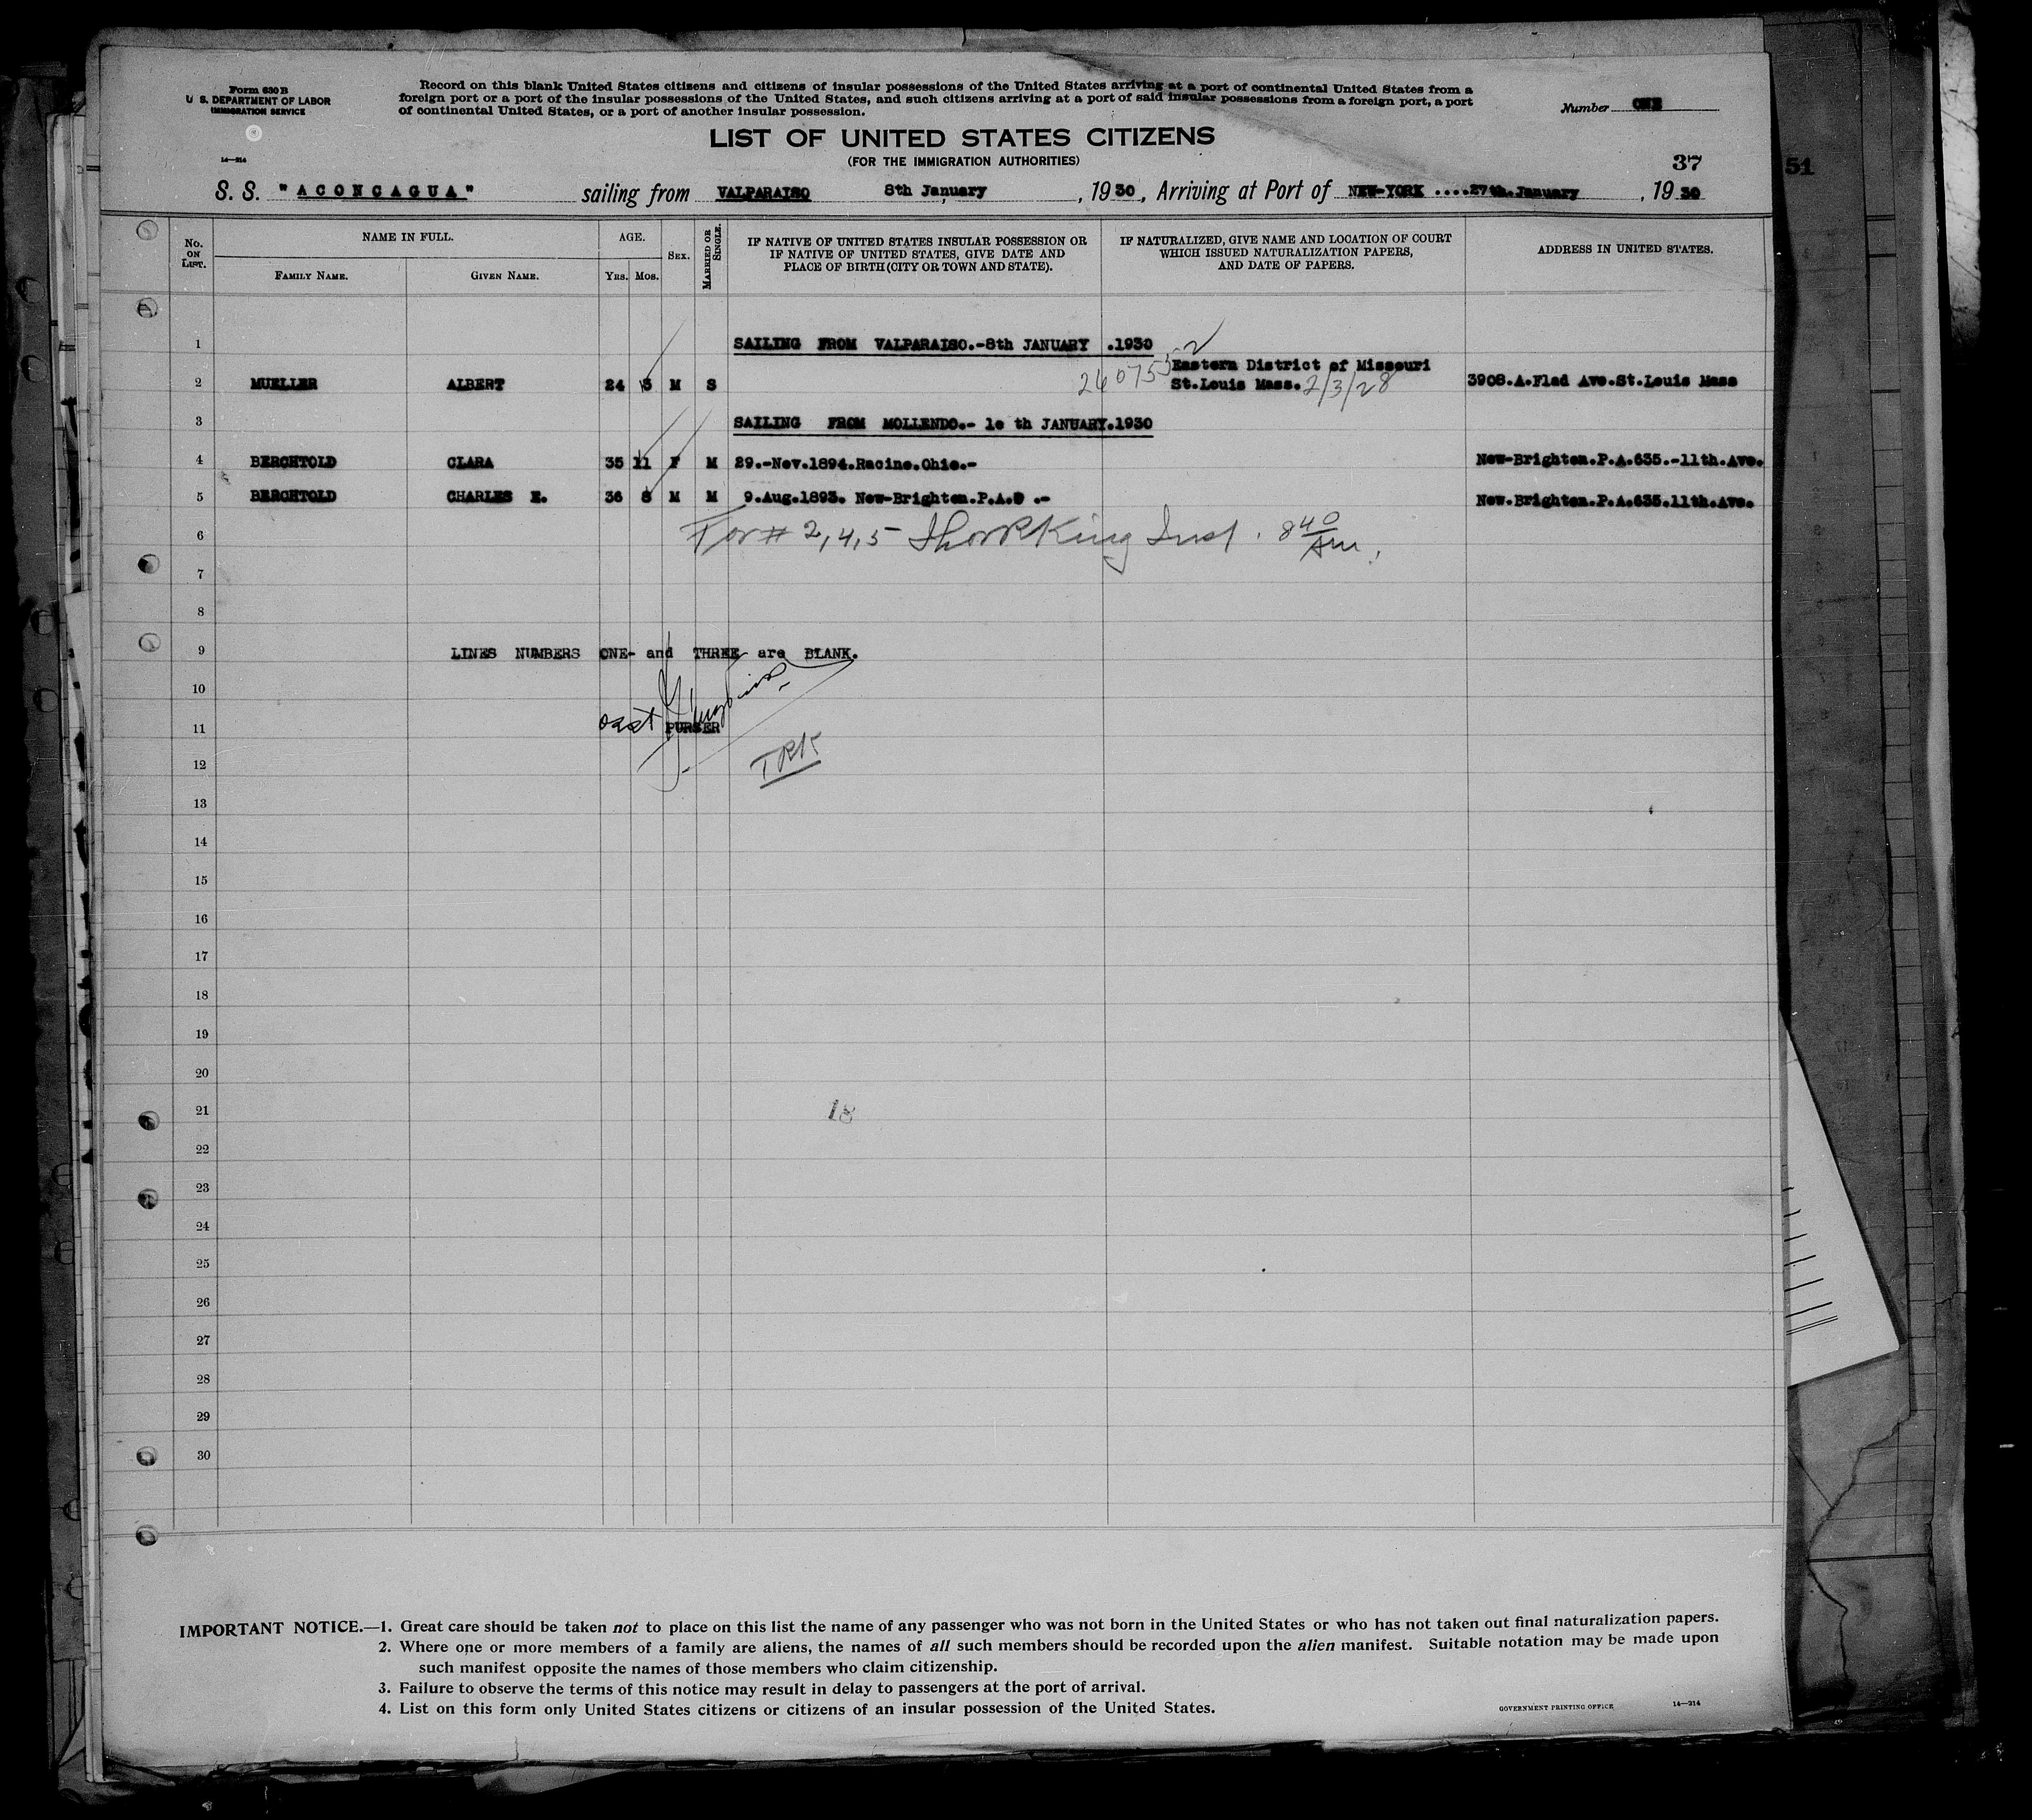 Form 630 B
U. S. DEPARTMENT OF LABOR
IMMIGRATION SERVICE
14—214
Record on this blank United States citizens and citizens of insular possessions of the United States arriving at a port of continental United States from a
foreign port or a port of the insular possessions of the United States, and such citizens arriving at a port of said insular possessions from a foreign port, a port
of continental United States, or a port of another insular possession.
Number ONE
LIST OF UNITED STATES CITIZENS
(FOR THE IMMIGRATION AUTHORITIES)
37
51
S. S. "ACONCAGUA" sailing from VALPARAISO 8th January, 1930, Arriving at Port of NEW-YORK ....27th.January, 1930
No. ON LIST.
NAME IN FULL.
FAMILY NAME.
GIVEN NAME.
AGE.
YRS. MOS.
SEX.
MARRIED OR SINGLE.
IF NATIVE OF UNITED STATES INSULAR POSSESSION OR
IF NATIVE OF UNITED STATES, GIVE DATE AND
PLACE OF BIRTH (CITY OR TOWN AND STATE).
IF NATURALIZED, GIVE NAME AND LOCATION OF COURT
WHICH ISSUED NATURALIZATION PAPERS,
AND DATE OF PAPERS.
ADDRESS IN UNITED STATES.
1 SAILING FROM VALPARAISO.-8th JANUARY .1930
Eastern District of Missouri
2 MUELLER ALBERT 24 M S St.Louis Mass. 2/3/28 3908.A.Flad Ave.St.Louis Mass
3 SAILING FROM MOLLENDO.- 1e th JANUARY.1930
4 BERCHTOLD CLARA 35 11 F M 29.-Nov.1894.Racine.Ohio.- New-Brighten.P.A.635.-11th.Ave.
5 BERCHTOLD CHARLES E. 36 8 M M 9.Aug.1893. New-Brighten.P.A. .- New.Brighten.P.A.635.11th.Ave.
6 For # 2,4,5 King Insp. 8 40 Am.
7
8
9 LINES NUMBERS ONE- and THREE are BLANK.
10
11 PURSER
12 TRK
13
14
15
16
17
18
19
20
21 18
22
23
24
25
26
27
28
29
30
IMPORTANT NOTICE.—1. Great care should be taken not to place on this list the name of any passenger who was not born in the United States or who has not taken out final naturalization papers.
2. Where one or more members of a family are aliens, the names of all such members should be recorded upon the alien manifest. Suitable notation may be made upon
such manifest opposite the names of those members who claim citizenship.
3. Failure to observe the terms of this notice may result in delay to passengers at the port of arrival.
4. List on this form only United States citizens or citizens of an insular possession of the United States.
GOVERNMENT PRINTING OFFICE 14—214